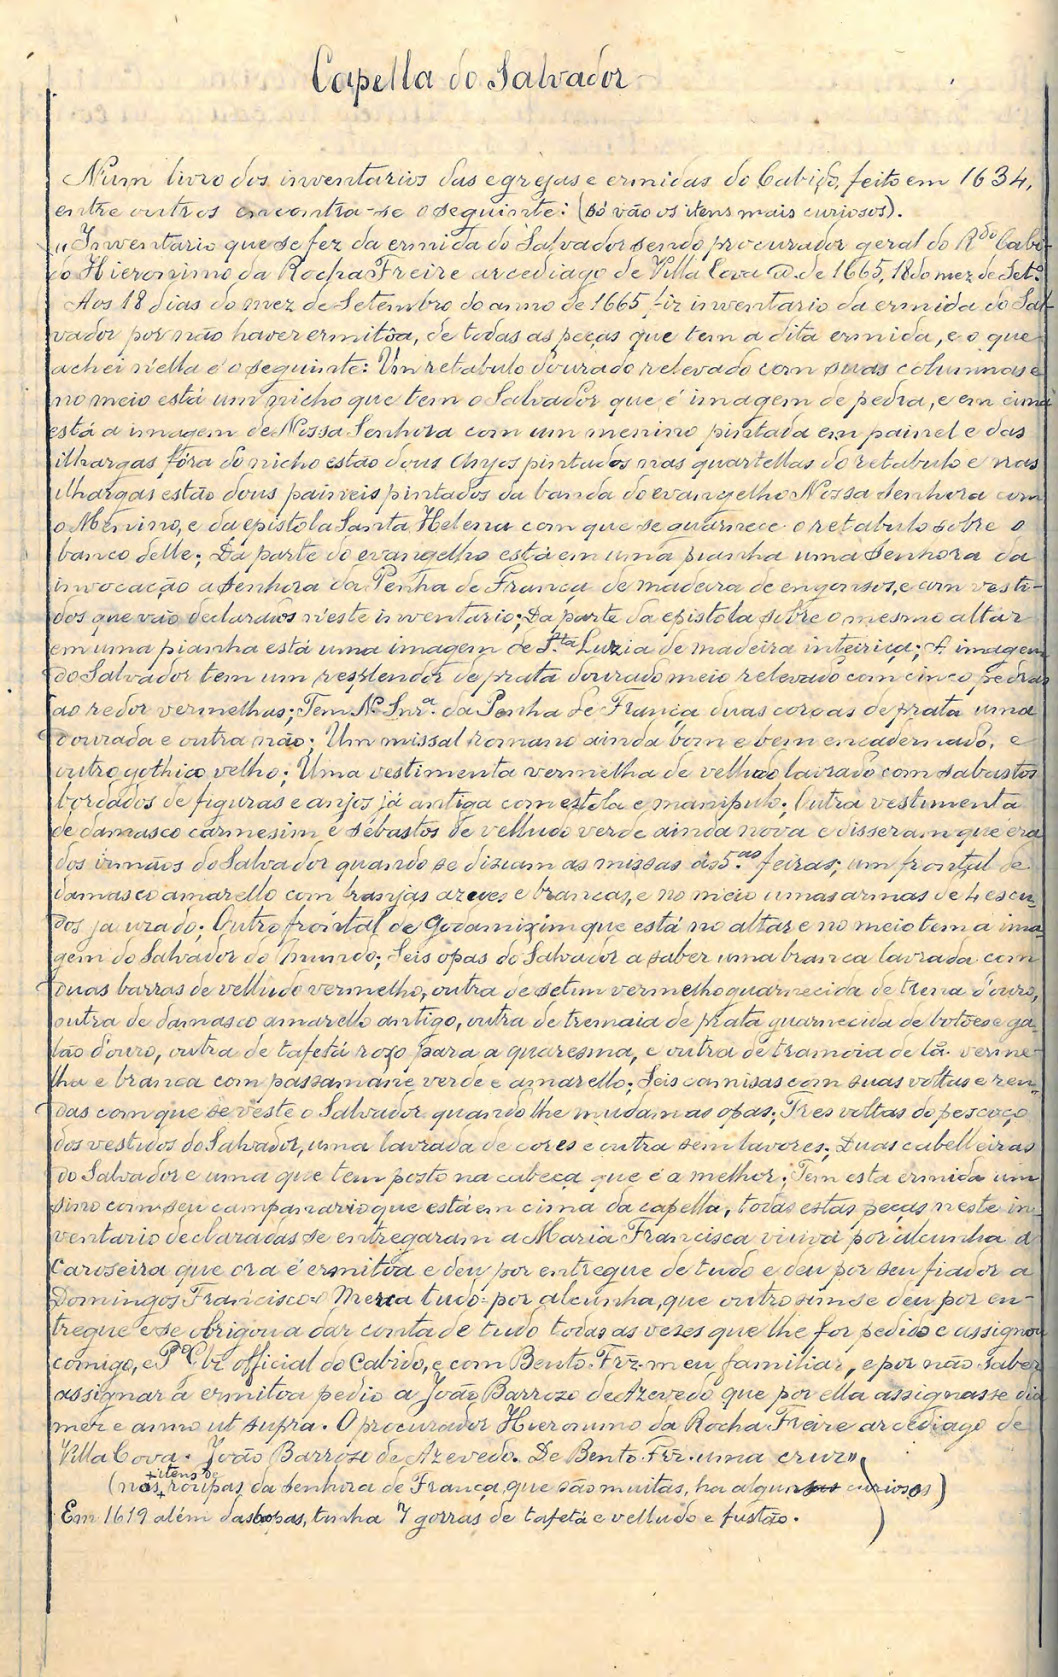 Capella do Salvador
Num livro dos inventarios das egrejas e ermidas do Cabido, feito em 1634,
entre outros encontra-se o seguinte: (só vão os itens mais curiosos).
"Inventario que se fez da ermida do Salvador sendo procurador geral do R.do Cabi-
do Hieronimo da Rocha Freire arcediago de Villa Cova @. de 1665, 18 do mez de Set.o
Aos 18 dias do mez de Setembro do anno de 1665 fiz inventario da ermida do Sal-
vador por não haver ermitôa, de todas as peças que tem a dita ermida, e o que
achei n'ella é o seguinte: Um retabulo dourado relevado com suas columnas e
no meio está um nicho que tem o Salvador que é imagem de pedra, e em cima
está a imagem de Nossa Senhora com um menino pintada em painel e das
ilhargas fóra do nicho estão dous Anjos pintados nas quartellas do retabulo e nas
ilhargas estão dous paineis pintados da banda do evangelho Nossa Senhora com
o Menino, e da epistola Santa Helena com que se guarnece o retabulo sobre o
banco delle; Da parte do evangelho está em uma pianha uma Senhora da
invocação a Senhora da Penha de França de madeira de engonsos, e com vesti-
dos que vão declarados n'este inventario; Da parte da epistola sobre o mesmo altar
em uma pianha está uma imagem de S.ta Luzia de madeira inteiriça; A imagem
do Salvador tem um resplendor de prata dourado meio relevado com cinco pedras
ao redor vermelhas; Tem N.a Snr.a da Penha de França duas coroas de prata uma
dourada e outra não; Um missal romano ainda bom e bem encadernado, e
outro gothico velho; Uma vestimenta vermelha de veludo lavrado com sabastos
bordados de figuras e anjos já antiga com estola e manipulo; Outra vestimenta
de damasco carmesim e sebastos de velludo verde ainda nova e disseram que era
dos irmãos do Salvador quando se diziam as missas ás 5.as feiras; um frontal de
damasco amarello com franjas azues e brancas, e no meio umas armas de 4 escu-
dos já uzado; Outro frontal de Godamixim que está no altar e no meio tem a ima-
gem do Salvador do Mundo; Seis opas do Salvador a saber uma branca lavrada com
duas barras de velludo vermelho, outra de setim vermelho guarnecida de trena d'ouro,
outra de damasco amarello antigo, outra de tremaia de prata guarnecida de botões e ga-
lão d'ouro, outra de tafetá roxo para a quaresma, e outra de tramoia de lã verme-
lha e branca com passamane verde e amarello; Seis camisas com suas voltas e ren-
das com que se véste o Salvador quando lhe mudam as opas; Tres voltas do pescoço
dos vestidos do Salvador, uma lavrada de cores e outra sem lavores; Duas cabelleiras
do Salvador e uma que tem posto na cabeça que é a melhor; Tem esta ermida um
sino com seu campanario que está em cima da capella, todas estas peças neste in-
ventario declaradas se entregaram a Maria Francisca viuva por alcunha a
Caroseira que ora é ermitôa e deu por entregue de tudo e deu por seu fiador a
Domingos Francisco Merca tudo por alcunha, que outro sim se deu por en-
tregue e se obrigou a dar conta de tudo todas as vezes que lhe for pedido e assignou
comigo, e P.o official do Cabido, e com Bento Frz meu familiar, e por não saber
assignar a ermitoa pedio a João Barrozo de Azevedo que por ella assignasse dia
mez e anno ut supra. O procurador Hieronimo da Rocha Freire arcediago de
Villa Cova. João Barroso de Azevedo. De Bento Frz. uma cruz"
(nos itens de roupas da Senhora de França, que são muitas, ha alguns curiosos)
Em 1619 além das opas, tinha 7 gorras de tafetá e velludo e fustão.